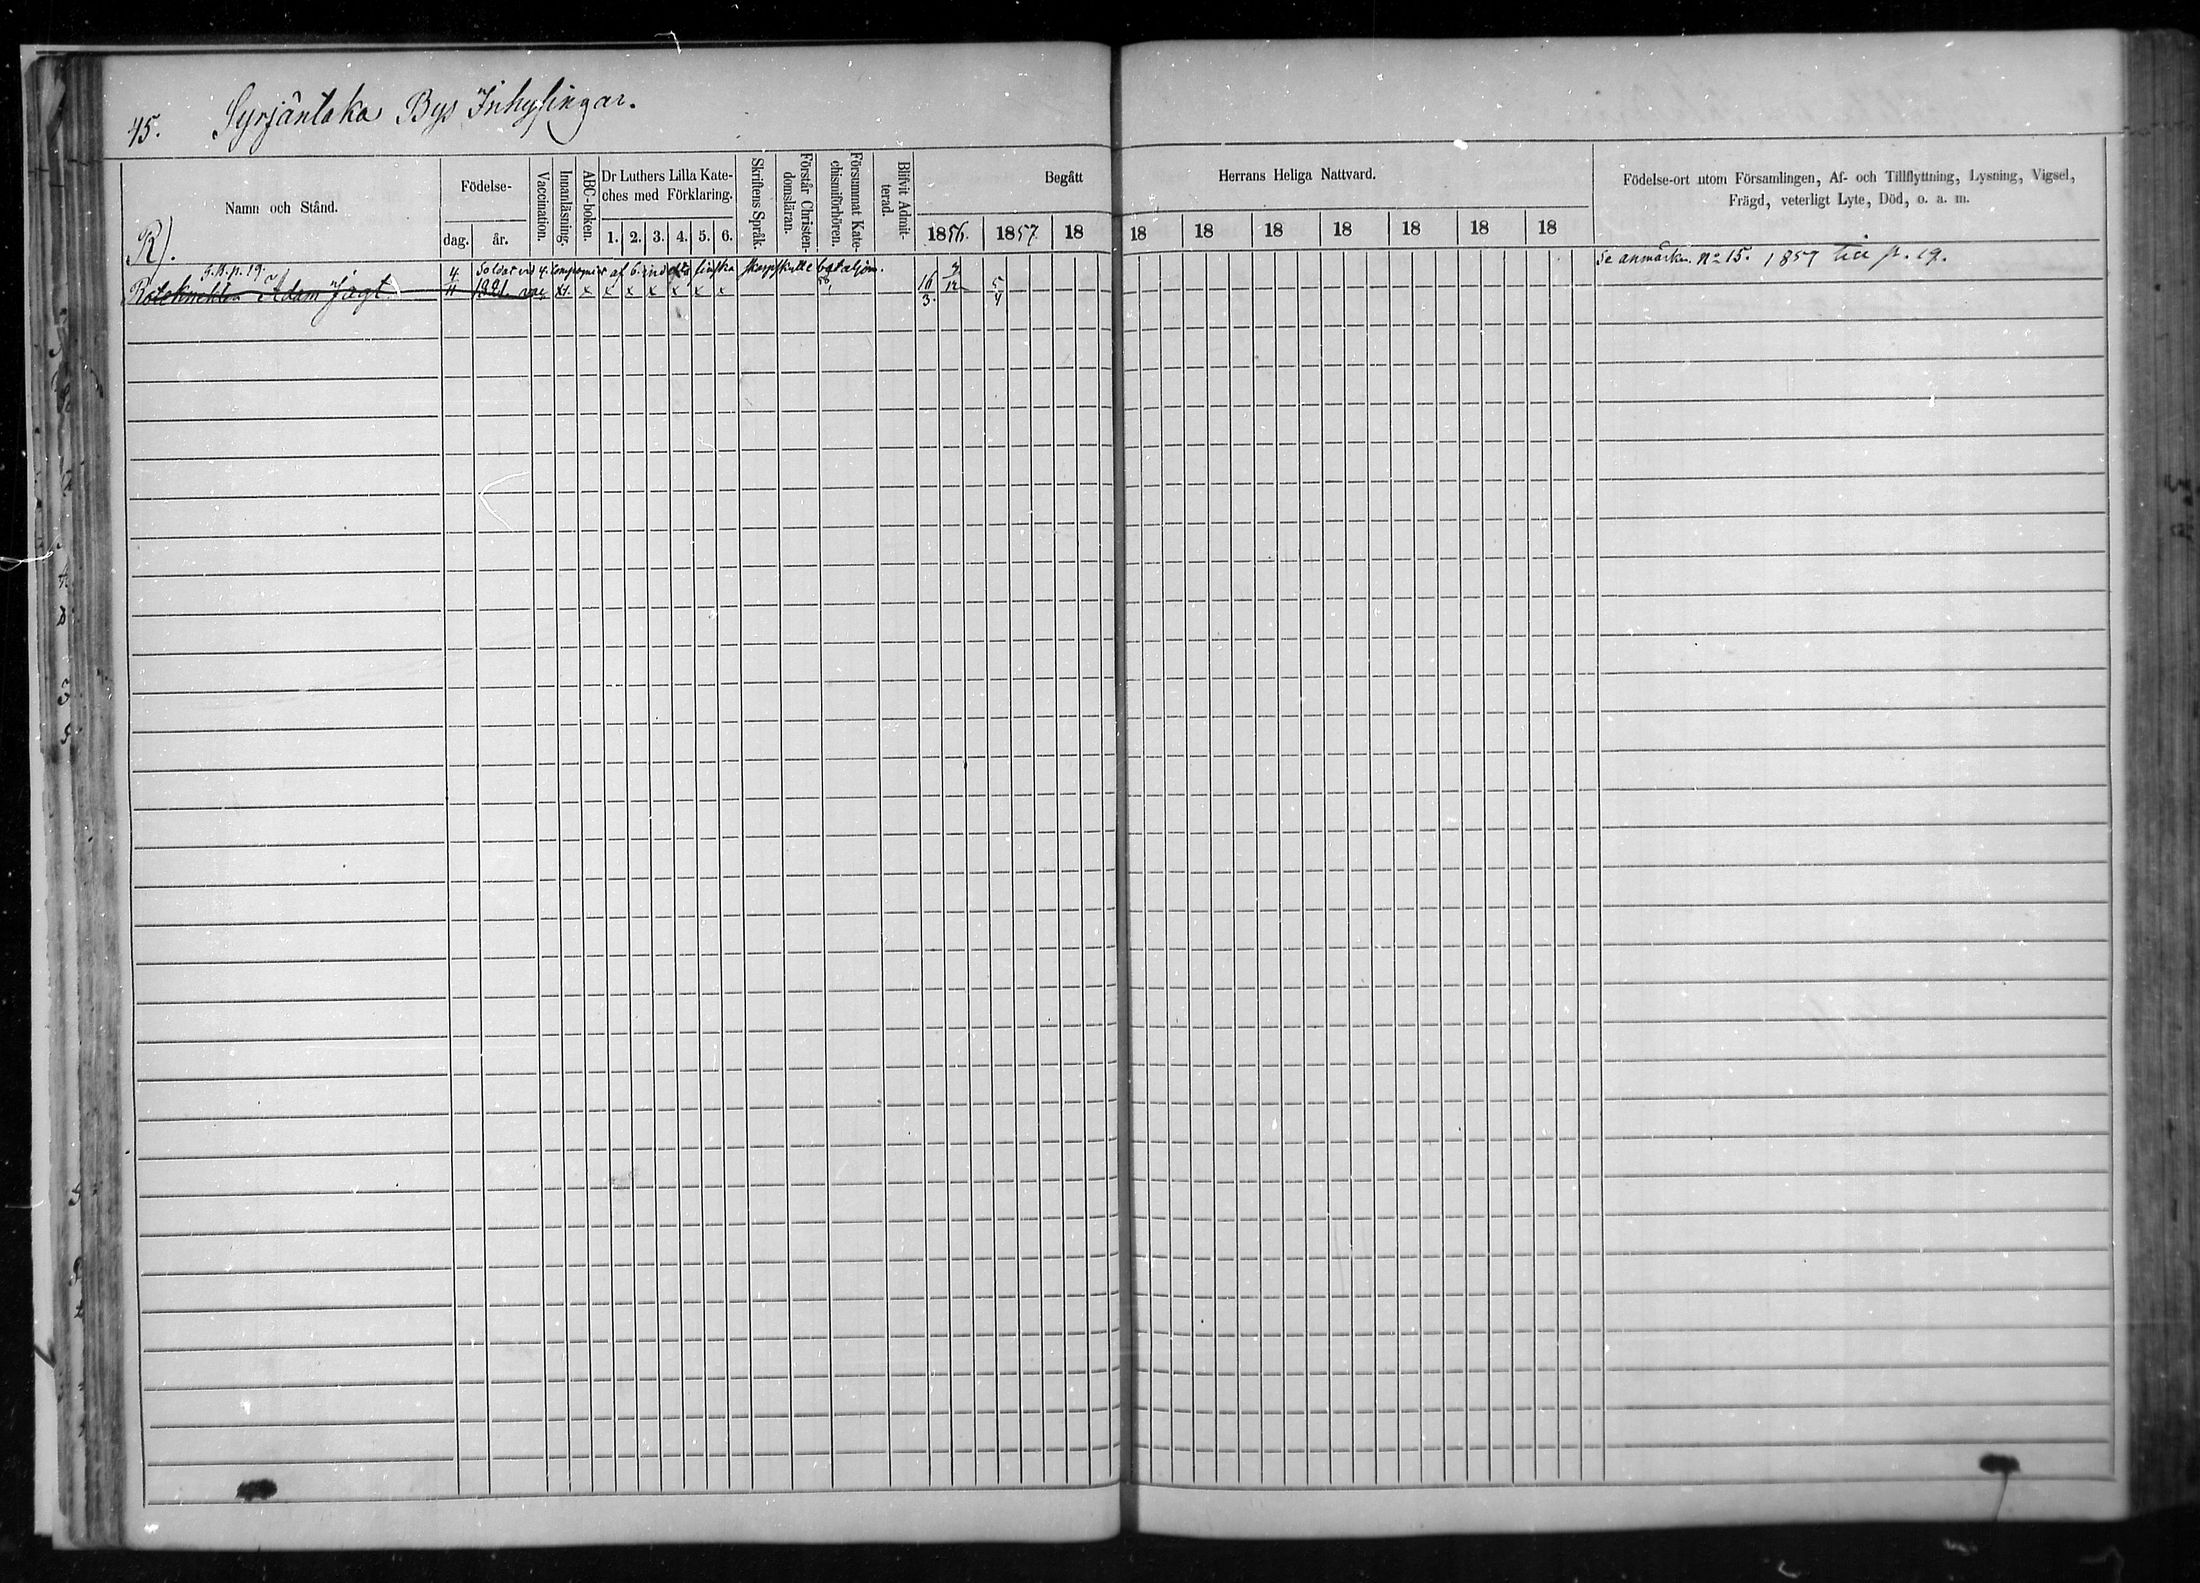 45. Syrjäntaka Bys Inhysingar.
Namn och Stånd.
Födelse-
dag. år.
Vaccination.
Innanläsning.
ABC-boken.
Dr Luthers Lilla Kate-
ches med Förklaring.
1. 2. 3. 4. 5. 6.
Skriftens Språk.
Förstår Christen-
domsläran.
Försummat Kate-
chismiförhören.
Blifvit Admit-
terad.
Begått Herrans Heliga Nattvard.
1856. 1857 18 18 18 18 18 18 18 18
Födelse-ort utom Församlingen, Af- och Tillflyttning, Lysning, Vigsel,
Frägd, veterligt Lyte, Död, o. a. m.
R).
p. 19. Soldat vid 4. Compagniet af 6. finska skarpskytte bataljon. Se anmärkn. No 15. 1857 till p. 19.
Adam Jägt 4/11 1821 x x x x x x x 16/3 5/4